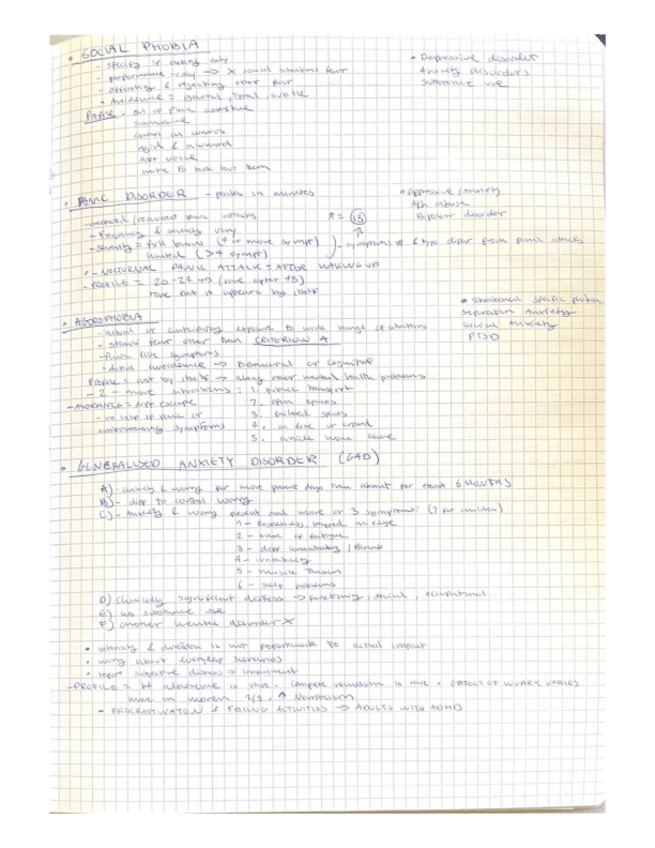 • SOCIAL PHOBIA
- specify if acting only
- performance-only → X social situations fear
- offending & rejecting other fear
• Avoidance = general, total, subtle
Profile -
submissive
control on convos
rigid & awkward
soft voice
• Depressive disorder
Anxiety disorders
Substance use
• PANIC DISORDER - peaks in minutes
- unexpected / recurrent panic attacks
- Frequency & severity vary
- severity = full blown (4 or more sympt)
limited (>4 sympt)
n = 13
↑
)- symptoms # & type differ from panic attacks
• Depressive / Anxiety
Alch abuse
Bipolar disorder
• - NOCTURNAL PANIC ATTACK = AFTER WAKING UP
- PROFILE = 20-24 yo (rare after 45)
rare that it appears by itself
• AGOROPHOBIA
- actual or anticipating exposure to wide range of situations
• stronger fear other than CRITERION A
- Panic like symptoms
- Active avoidance → Behavioral or cognitive
Profile = not by itself → along other mental health problems
- 2 - more situations = 1. public transport
2. open spaces
3. enclosed spaces
4. in line or crowd
5. outside home alone
- AVOIDANCE = diff escape
- no help if panic or
embarrassing symptoms
• Situational specific phobia
Separation Anxiety
Social Anxiety
PTSD
• GENERALISED ANXIETY DISORDER (GAD)
A) - anxiety & worry for more present days than absent for atleast 6 MONTHS
B) - diff to control worry
C) - Anxiety & worry present and more or 3 symptoms: (1 for children)
1 - Restlessness, trapped in edge
2 - ease of fatigue
3 - diff concentrating / Blank
4 - irritability
5 - muscle Tension
6 - sleep problems
D) clinically significant distress → functioning, social, occupational.
E) no substance use
F) another mental disorder X
• intensity & duration is not proportionate to actual impact
• worry about everyday scenarios
• report subjective distress → impairment
- PROFILE = bf adolescence is rare. complete remission is rare • OBJECT OF WORRY VARIES
more in women 2/3. ↑ Neuroticism
- PROCRASTINATION & FAILING ACTIVITIES → ADULTS WITH ADHD